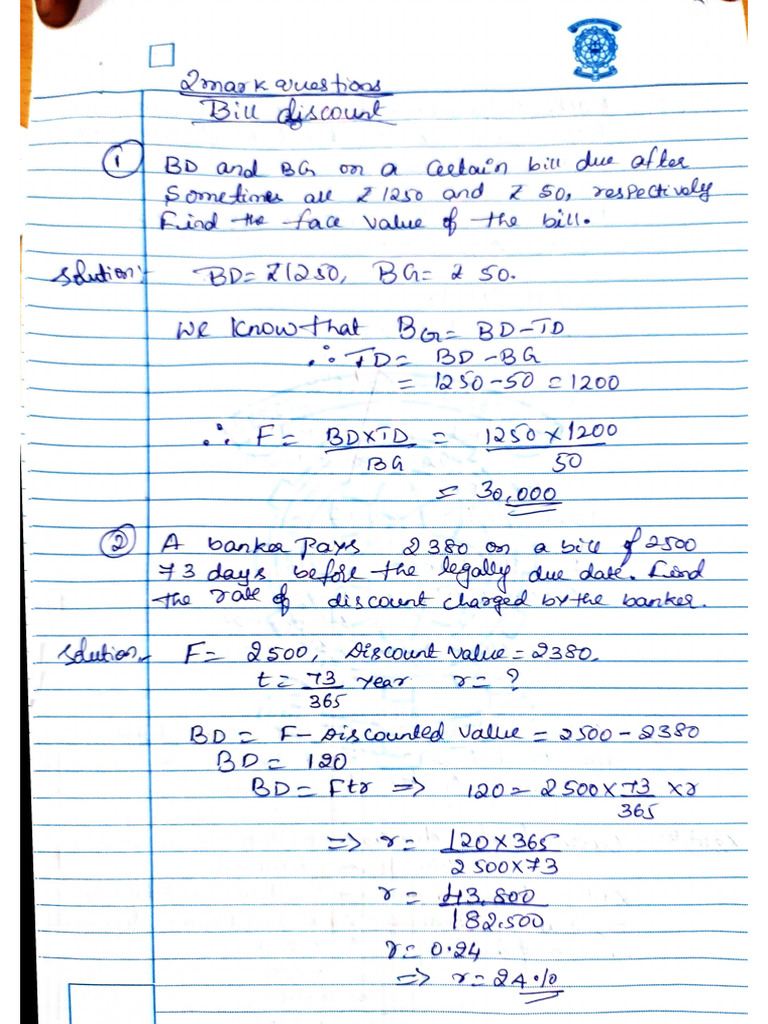 2 mark questions
Bill discount
① BD and BG on a certain bill due after
Sometimes are ₹1250 and ₹ 50, respectively
Find the face value of the bill.
Solution:- BD= ₹1250, BG= ₹ 50.
We know that BG= BD-TD
∴ TD= BD-BG
= 1250-50 = 1200
∴ F= BD×TD/BG = 1250×1200/50
= 30,000
② A banker Pays 2380 on a bill of 2500
73 days before the legally due date. Find
the rate of discount charged by the banker.
Solution:- F= 2500, Discount value=2380.
t= 73/365 year r= ?
BD= F- Discounted value = 2500-2380
BD= 120
BD= Ftr => 120= 2500×73/365 ×r
=> r= 120×365/2500×73
r= 43,800/182,500
r= 0.24
=> r= 24%